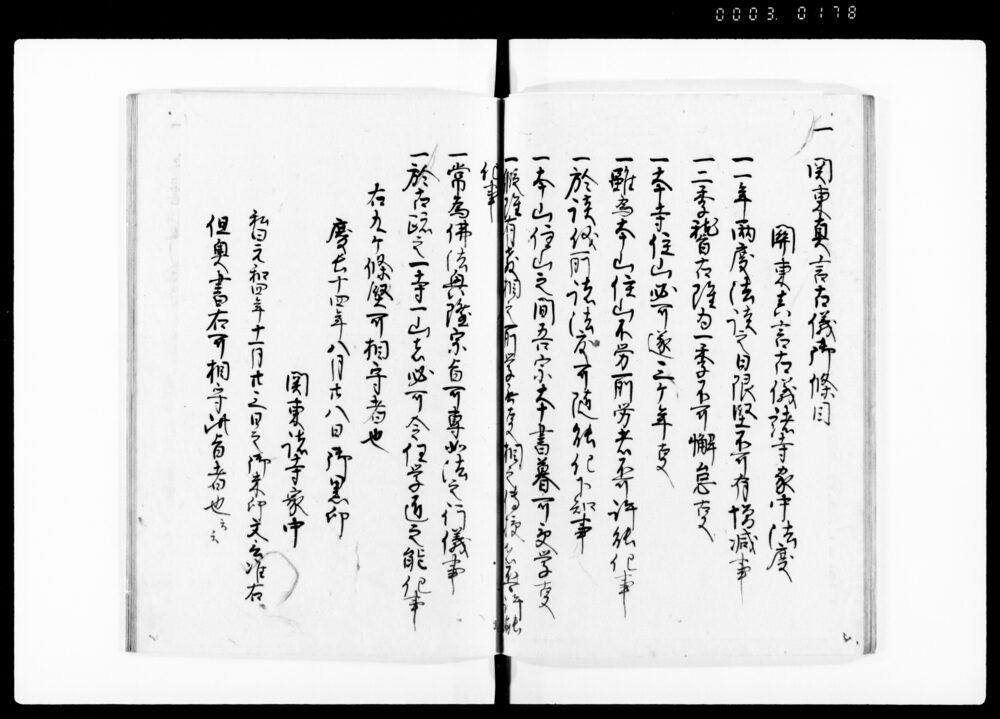 0003 0178
一 関東真言古儀御條目
関東真言古儀諸寺家中法度
一一年兩度法談之日限堅不可有増減事
一二季談習古雖為一季不可懈怠事
一本寺住山必可遂三ケ年事
一雖為本山住山不労所労者不可許能化事
一於談儀所諸法度可随能化下知事
一本山住山之間吾宗大事書暮可受学事
一縦雖有教相之所学無事相之傳受者不可許能
化事
一常為佛法興隆宗旨可専如法之行儀事
一於古跡之一寺一山者必可令住学道之能化事
右九ケ條堅可相守者也
慶長十四年八月廿八日御黒印
関東諸寺家中
私曰元和四年十一月廿三日之御朱印文言准右
但奥書右可相守此旨者也云云